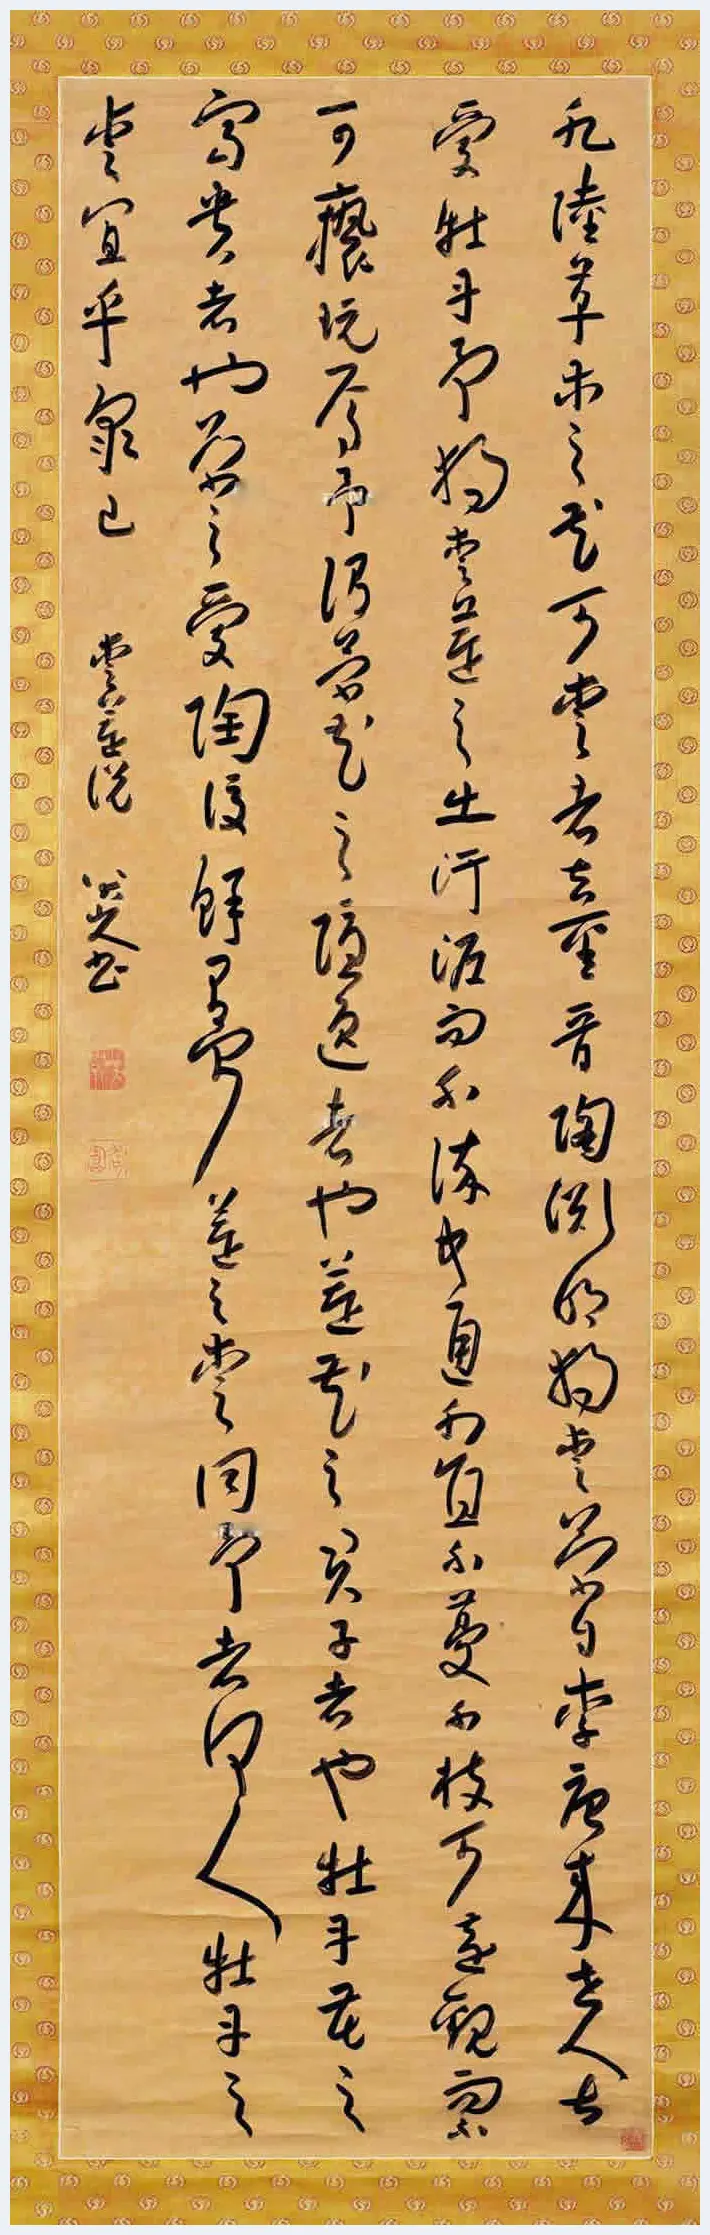 凡陸草木之花可愛者甚晉陶淵明獨愛菊自李唐來世人甚
愛牡丹予獨愛蓮之出汙泥而不染中通外直不蔓不枝可遠觀而不
可褻玩焉予謂菊花之隱逸者也蓮花之君子者也牡丹花之
富貴者也菊之愛陶後鮮有聞蓮之愛同予者何人牡丹之
愛宜乎衆已 愛蓮說 八大山人書